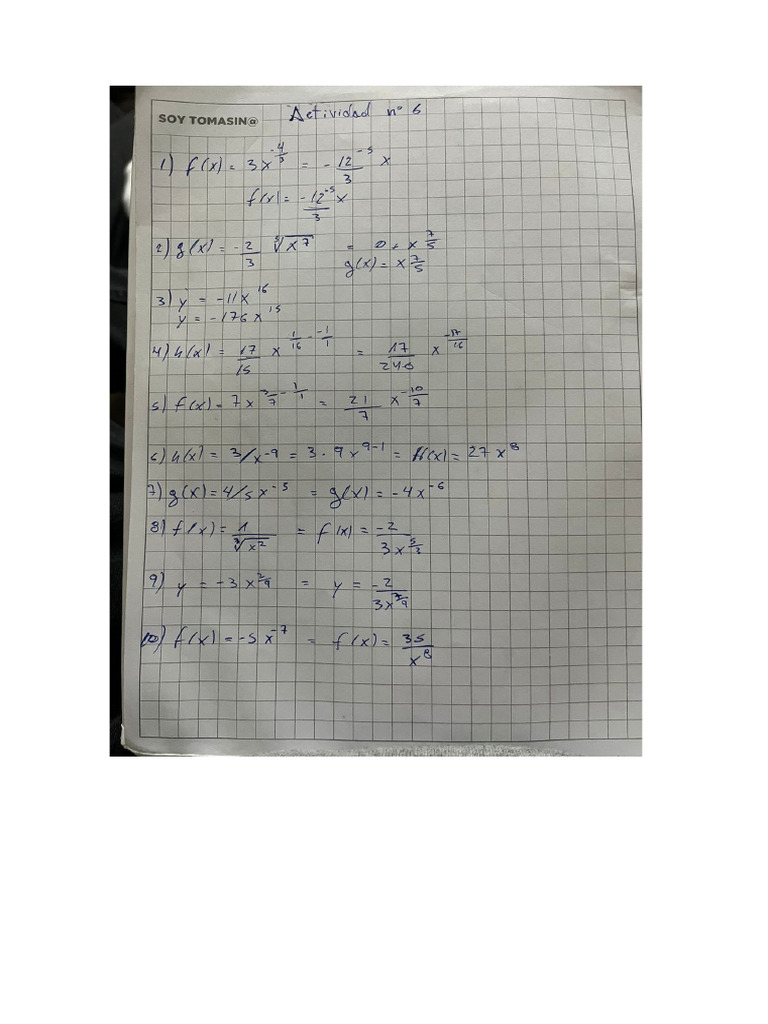 SOY TOMASIN@
Actividad nº 6
1) f(x) = 3x^-4/3 = - 12^-5/3 x
f(x) = - 12^-5/3 x
2) g(x) = -2/3 ⁵√x⁷ = 0 + x^7/5
g(x) = x^7/5
3) y = -11x^16
y = -176x^15
4) h(x) = 17/15 x^1/16 - -1/1 = 17/240 x^-17/16
5) f(x) = 7x^3/7 - 1/1 = 21/7 x^-10/7
6) h(x) = 3/x^-9 = 3 · 9x^9-1 = H(x) = 27x^8
7) g(x) = 4/5x^-5 = g(x) = -4x^-6
8) f(x) = 1/³√x² = f(x) = -2/3x^5/3
9) y = -3x^2/9 = y = -2/3x^7/9
10) f(x) = -5x^-7 = f(x) = 35/x^8